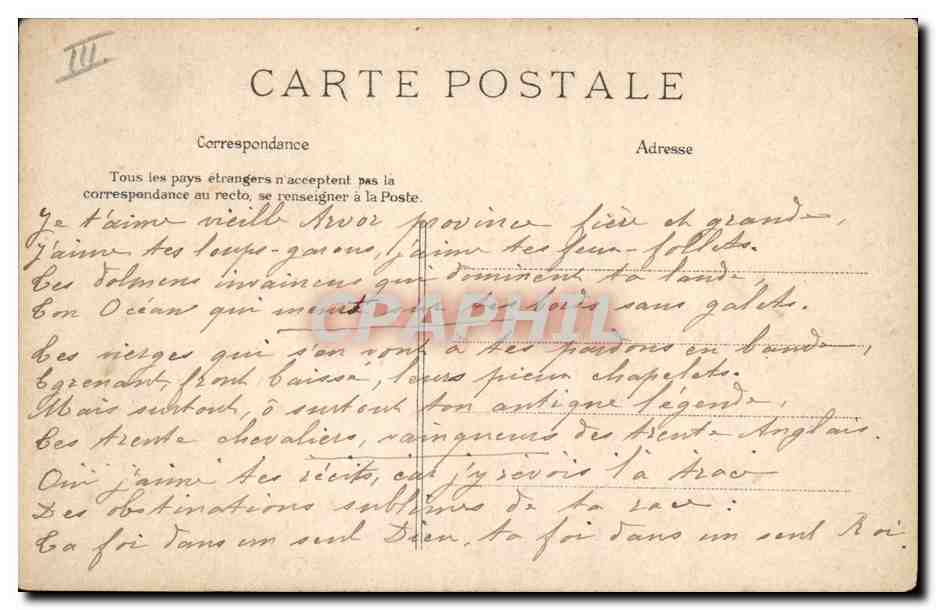 III.
CARTE POSTALE
Correspondance
Adresse
Tous les pays étrangers n'acceptent pas la
correspondance au recto, se renseigner à la Poste.
Je t'aime vieille Arvor province fière et grande,
J'aime tes loups-garous, j'aime tes feux-follets.
Tes dolmens invaincus qui dominent ta lande,
Ton Océan qui meurt sur tes bords sans galets.
Tes vierges qui s'en vont à tes pardons en bande,
Egrenant, front baissé, leurs pieux chapelets.
Mais surtout, ô surtout ton antique légende,
Tes trente chevaliers, vainqueurs des trente Anglais.
Oui j'aime tes récits, car j'y revois la trace
Des obstinations sublimes de ta race :
Ta foi dans un seul Dieu, ta foi dans un seul Roi.
CPAPHIL